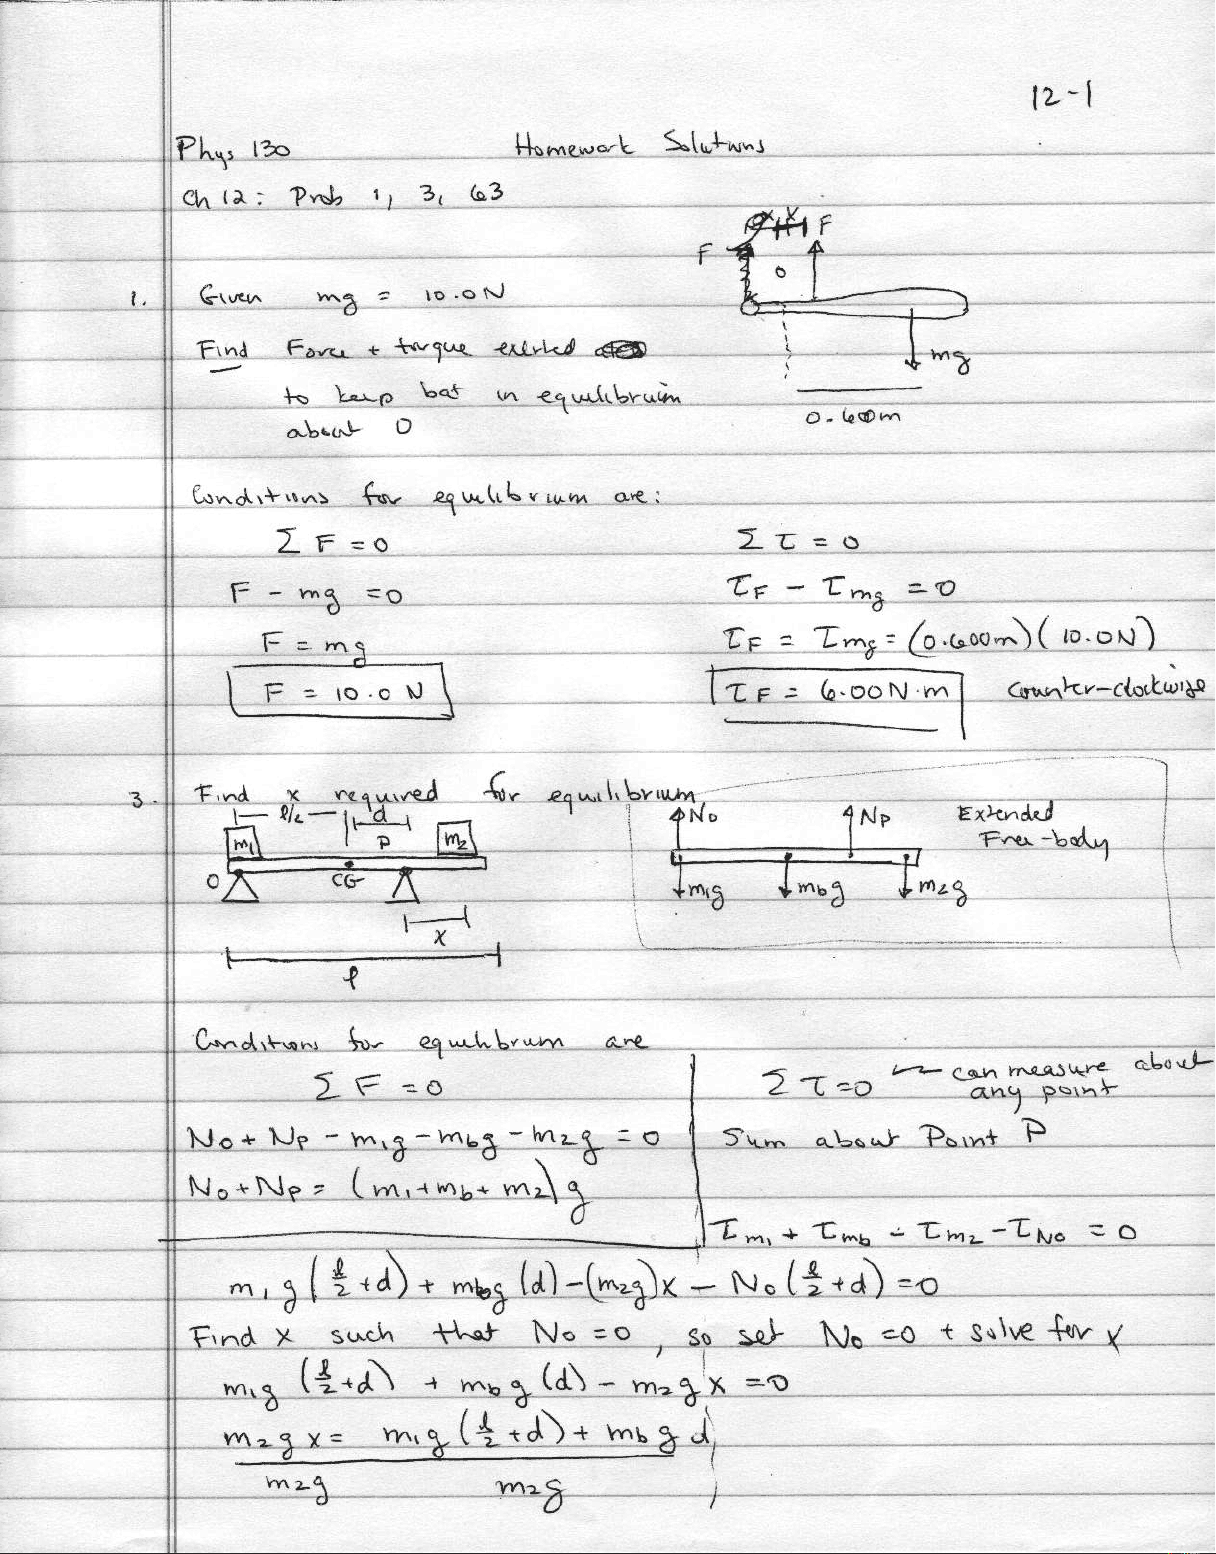 12-1
Phys 130 Homework Solutions
Ch 12: Prob 1, 3, 63
F F
O
1. Given mg = 10.0N
Find Force + torque exerted
mg
to keep bat in equilibrium
about O
0.600m
Conditions for equilibrium are:
Σ F = 0 Σ τ = 0
F - mg = 0 τF - τmg = 0
F = mg τF = τmg = (0.600m)(10.0N)
F = 10.0 N τF = 6.00 N·m counter-clockwise
3. Find x required for equilibrium
l/2 d
m1 P m2
O CG
x
l
No Np Extended
Free-body
m1g mbg m2g
Conditions for equilibrium are
Σ F = 0 Σ τ = 0 can measure about
any point
No + Np - m1g - mbg - m2g = 0 Sum about Point P
No + Np = (m1 + mb + m2) g
τm1 + τmb - τm2 - τNo = 0
m1g(l/2 + d) + mbg(d) - (m2g)x - No(l/2 + d) = 0
Find x such that No = 0, so set No = 0 + solve for x
m1g (l/2 + d) + mbg(d) - m2gx = 0
m2gx = m1g(l/2 + d) + mbgd
m2g m2g